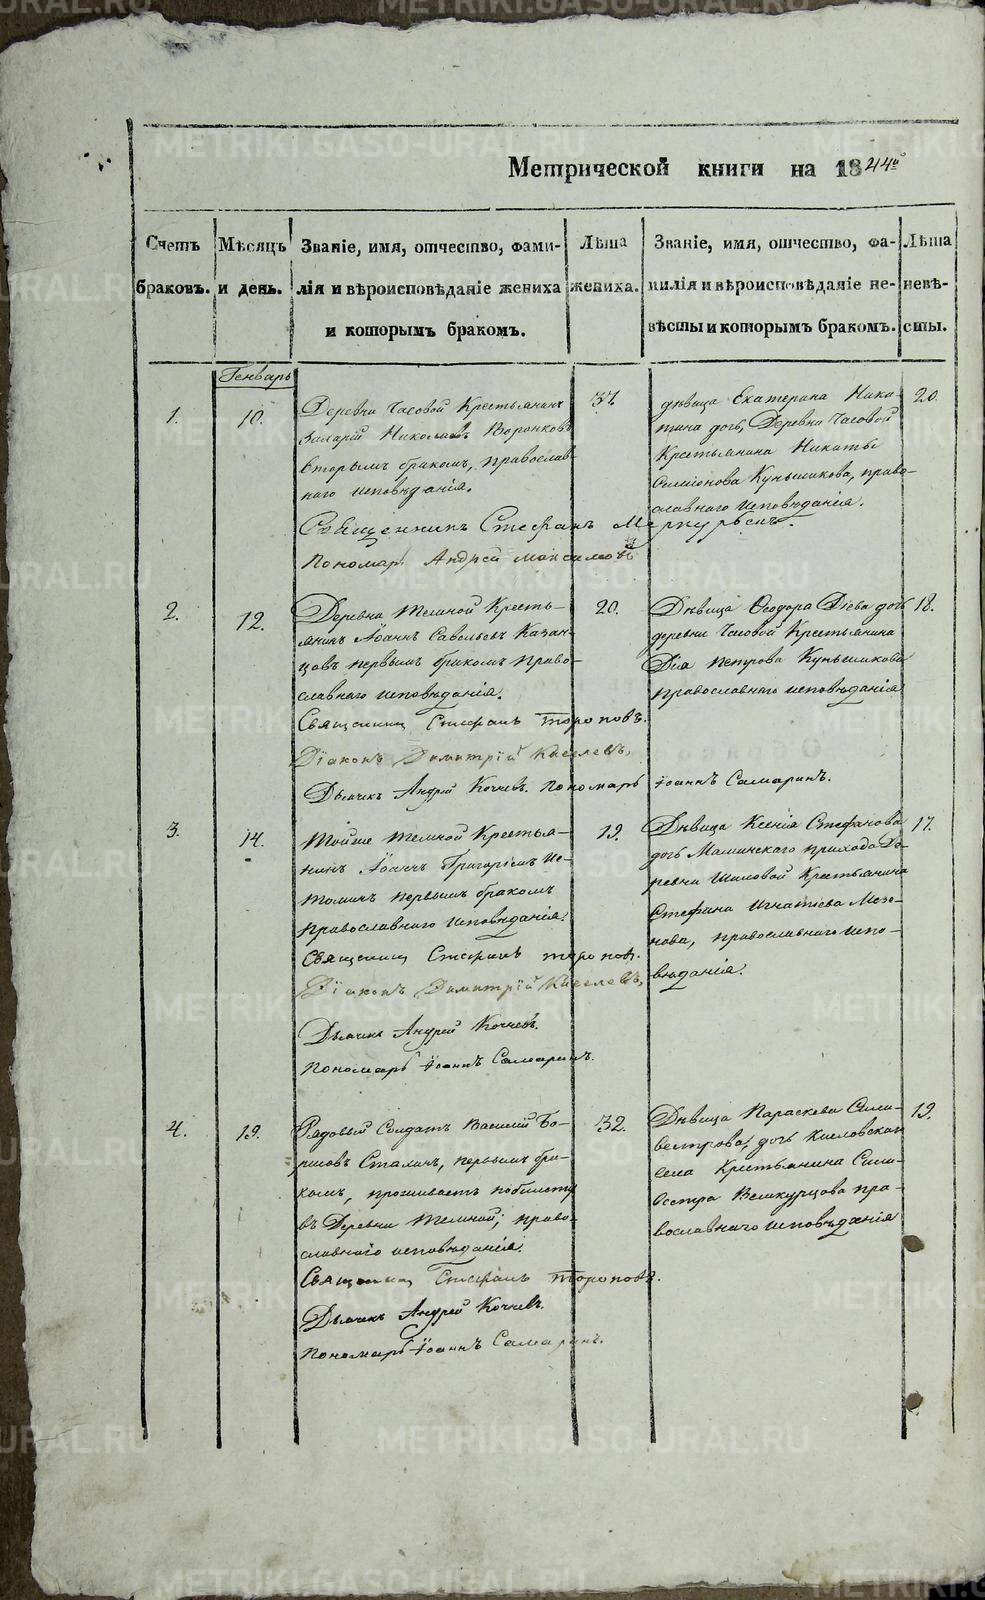 Метрической книги на 1844й
Счетъ браковъ.
Мѣсяцъ и день.
Званіе, имя, отчество, фами-
лія и вѣроисповѣданіе жениха
и которымъ бракомъ.
Лѣта жениха.
Званіе, имя, отчество, фа-
милія и вѣроисповѣданіе не-
вѣсты и которымъ бракомъ.
Лѣта невѣ-
сты.
Генварь
1.
10.
Деревни Часовой Крестьянинъ
Николаевъ Воронковъ
вторымъ бракомъ, православ-
наго исповѣданія.
Священникъ Стефанъ Меркурьевъ.
Пономарь Андрей Максимовъ
37.
дѣвица Екатерина Ники-
тина дочь, Деревни Часовой
Крестьянина Никиты
Симіонова Кунышкова, право-
славнаго исповѣданія.
20.
2.
12.
Деревни Темной Кресть-
янинъ Іоаннъ Савельевъ Казан-
цовъ первымъ бракомъ право-
славнаго исповѣданія.
Священникъ Стефанъ Тороповъ.
Діаконъ Димитрій Киселевъ,
Дьячекъ Андрей Кочневъ. Пономарь Іоаннъ Самаринъ.
20.
Дѣвица Ѳеодора Діева дочь
деревни Часовой Крестьянина
Діа Петрова Кунышкова
православнаго исповѣданія
18.
3.
14.
Тойже Темной Крестья-
нинъ Іоаннъ Григорьевъ Ис-
томинъ первымъ бракомъ
православнаго исповѣданія.
Священникъ Стефанъ Тороповъ.
Діаконъ Димитрій Киселевъ,
Дьячекъ Андрей Кочневъ.
Пономарь Іоаннъ Самаринъ.
19.
Дѣвица Ксенія Стефанова
дочь Маминскаго прихода Де-
ревни Шиловой Крестьянина
Стефана Игнатіева Мезе-
нова, православнаго испо-
вѣданія.
17.
4.
19.
Рядовый Солдатъ Василій Бо-
рисовъ Сталинъ, первымъ бра-
комъ, проживаетъ побилету
въ Деревни Темной; право-
славнаго исповѣданія.
Священникъ Стефанъ Тороповъ.
Дьячекъ Андрей Кочневъ.
Пономарь Іоаннъ Самаринъ.
32.
Дѣвица Параскева Силь-
вестрова, дочь Кисловскаго
села Крестьянина Силь-
вестра Великурцова пра-
вославнаго исповѣданія
19.
METRIKI.GASO-URAL.RU